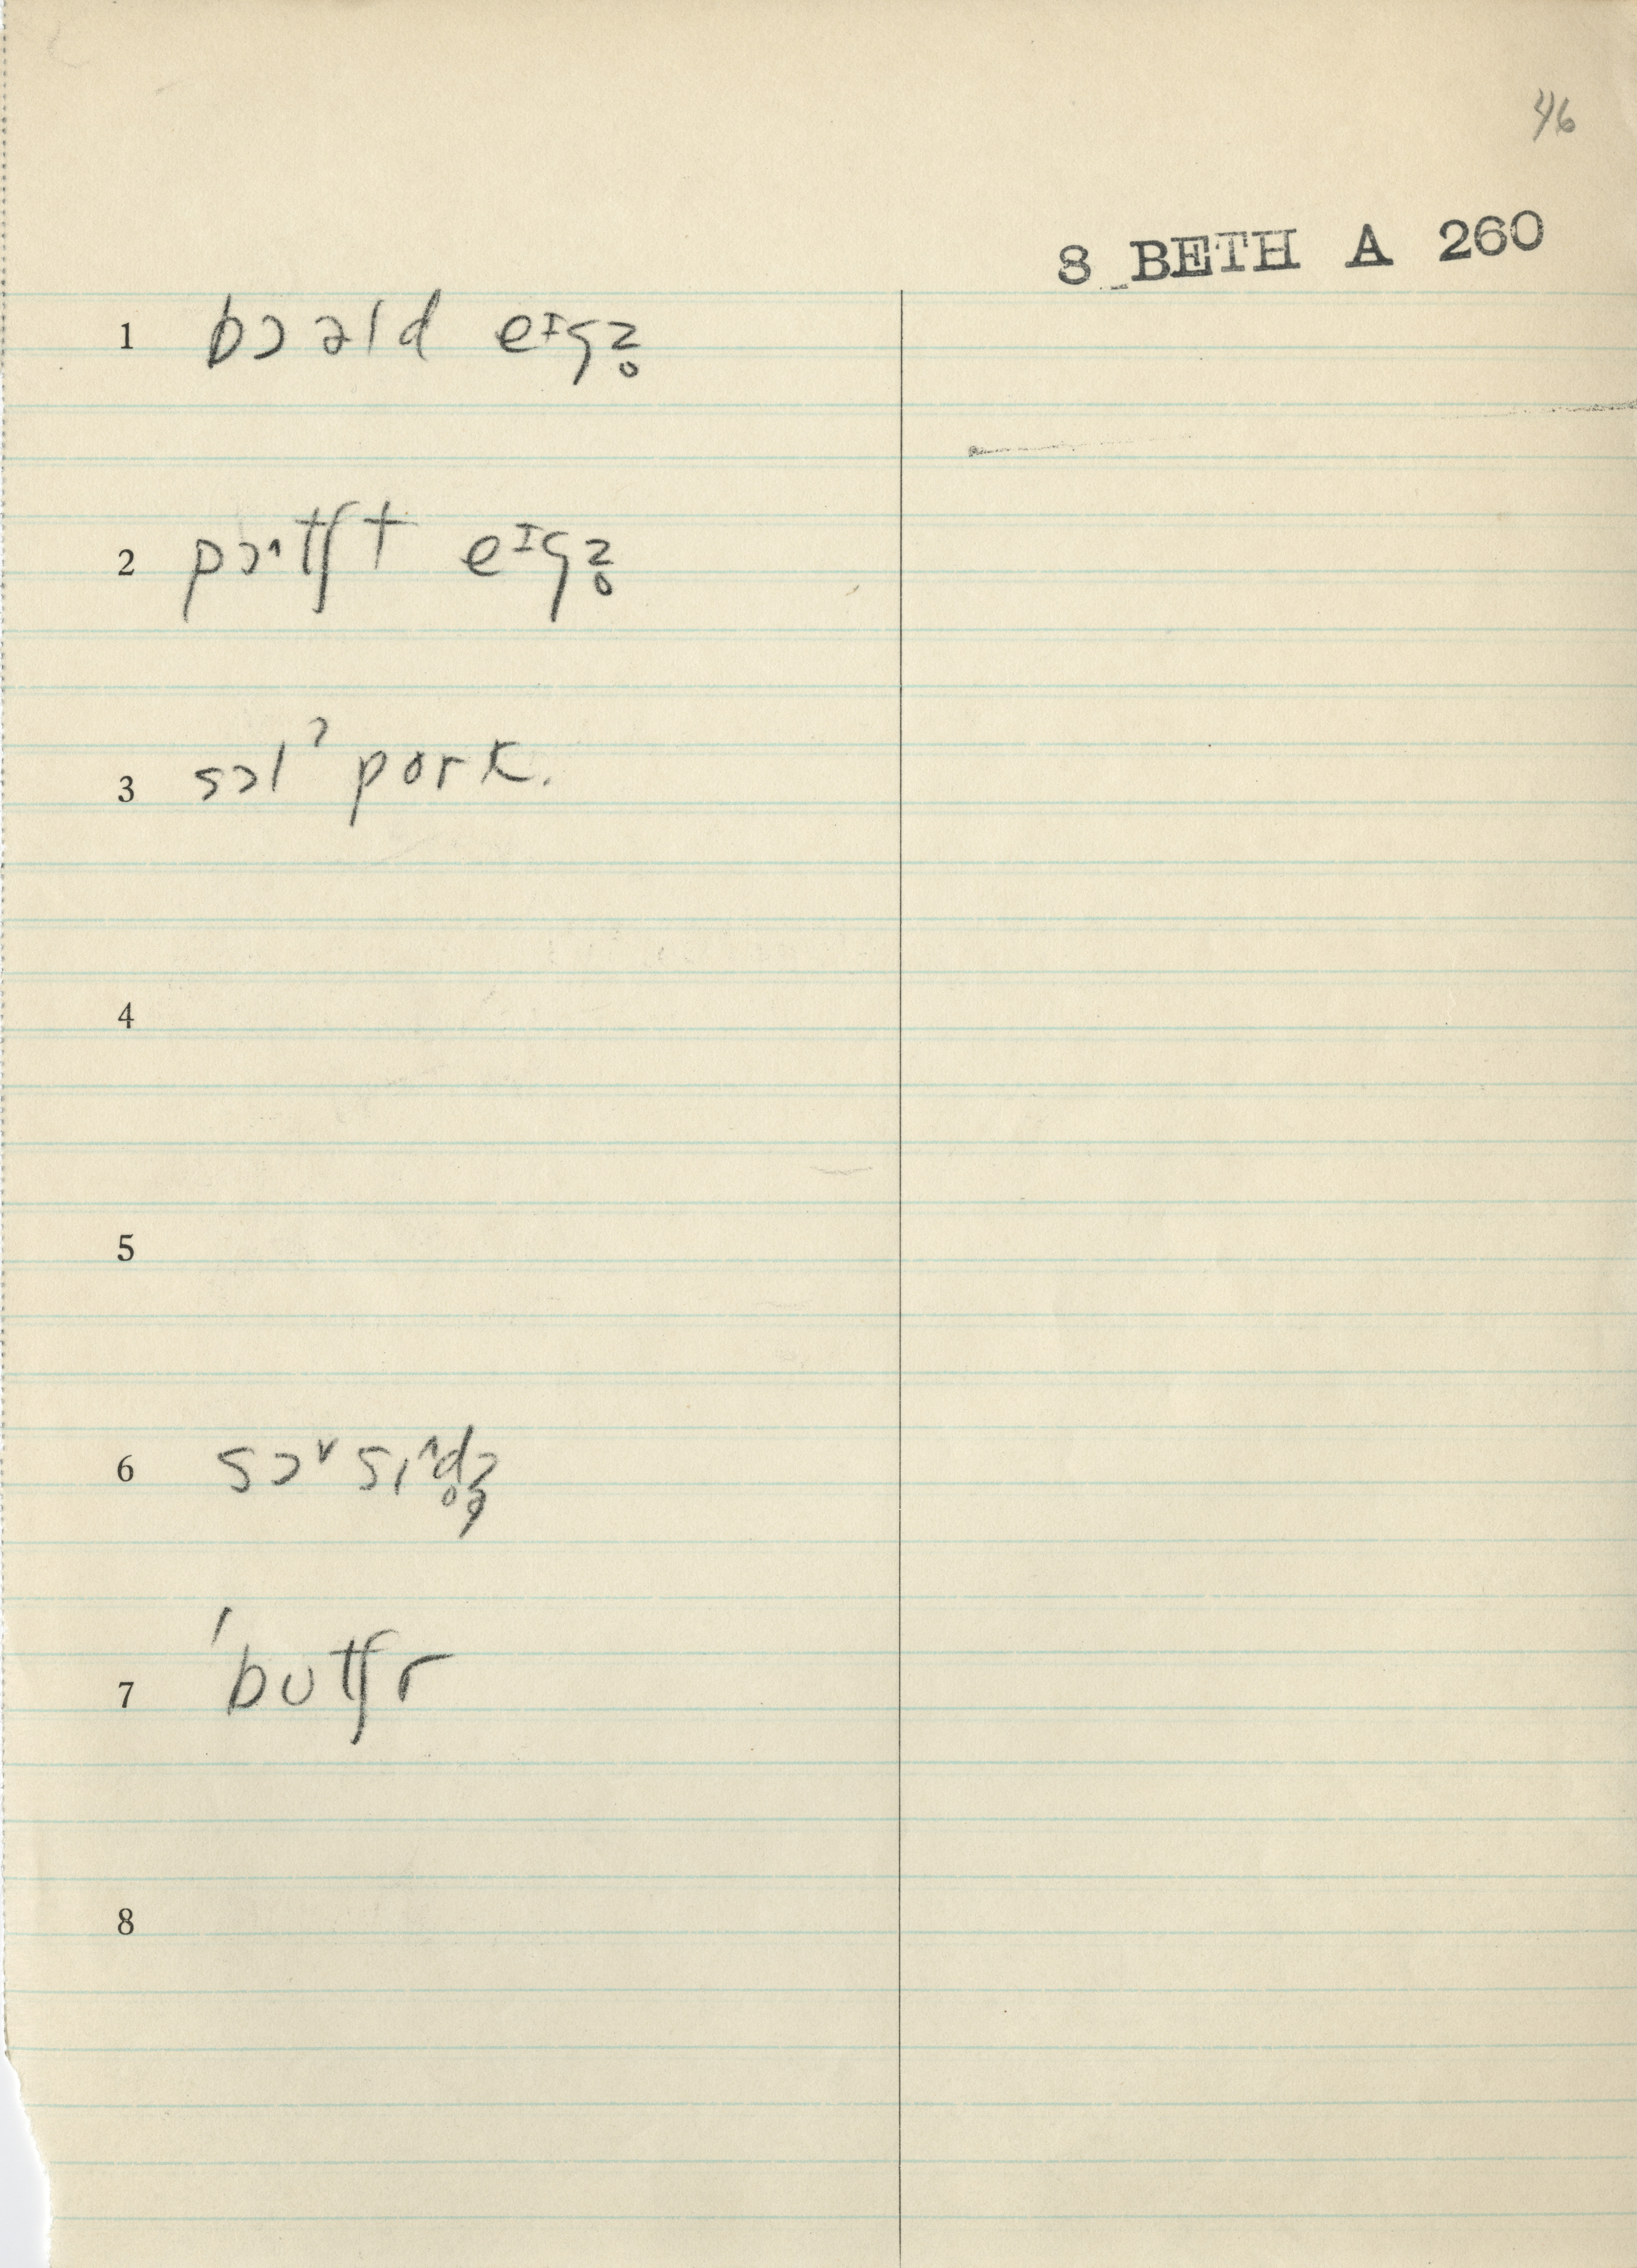 46
8 BETH A 260
1 bɔəld eᶦgz̥
2 pɔᶺtʃt eᶦgz̥
3 sɔlˀ pork.
4
5
6 sɔᵛsɪᶺd̥ʒ̥
7 ˈbutʃr
8